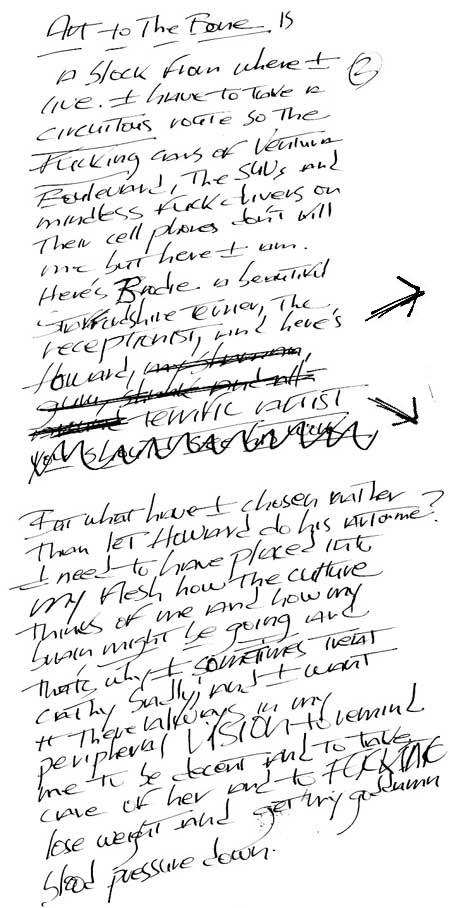 Art to The Bone is
a block from where I
live. I have to take a
circuitous route so the
fucking cars of Ventura
Boulevard, The SUVs and
mindless fuck drivers on
their cell phones don't kill
me but here I am.
Here's Brodie a beautiful
Staffordshire terrier, the
receptionist, and here's
Howard,
terrific artist
For what have I chosen rather
than let Howard do his
I need to have placed into
my flesh how the culture
thinks of me and how my
brain might be going and
that's why I sometimes treat
Cathy badly, and I want
it there always in my
peripheral VISION to remind
me to be decent and to take
care of her and to FUCKING
lose weight and get my goddamn
blood pressure down.